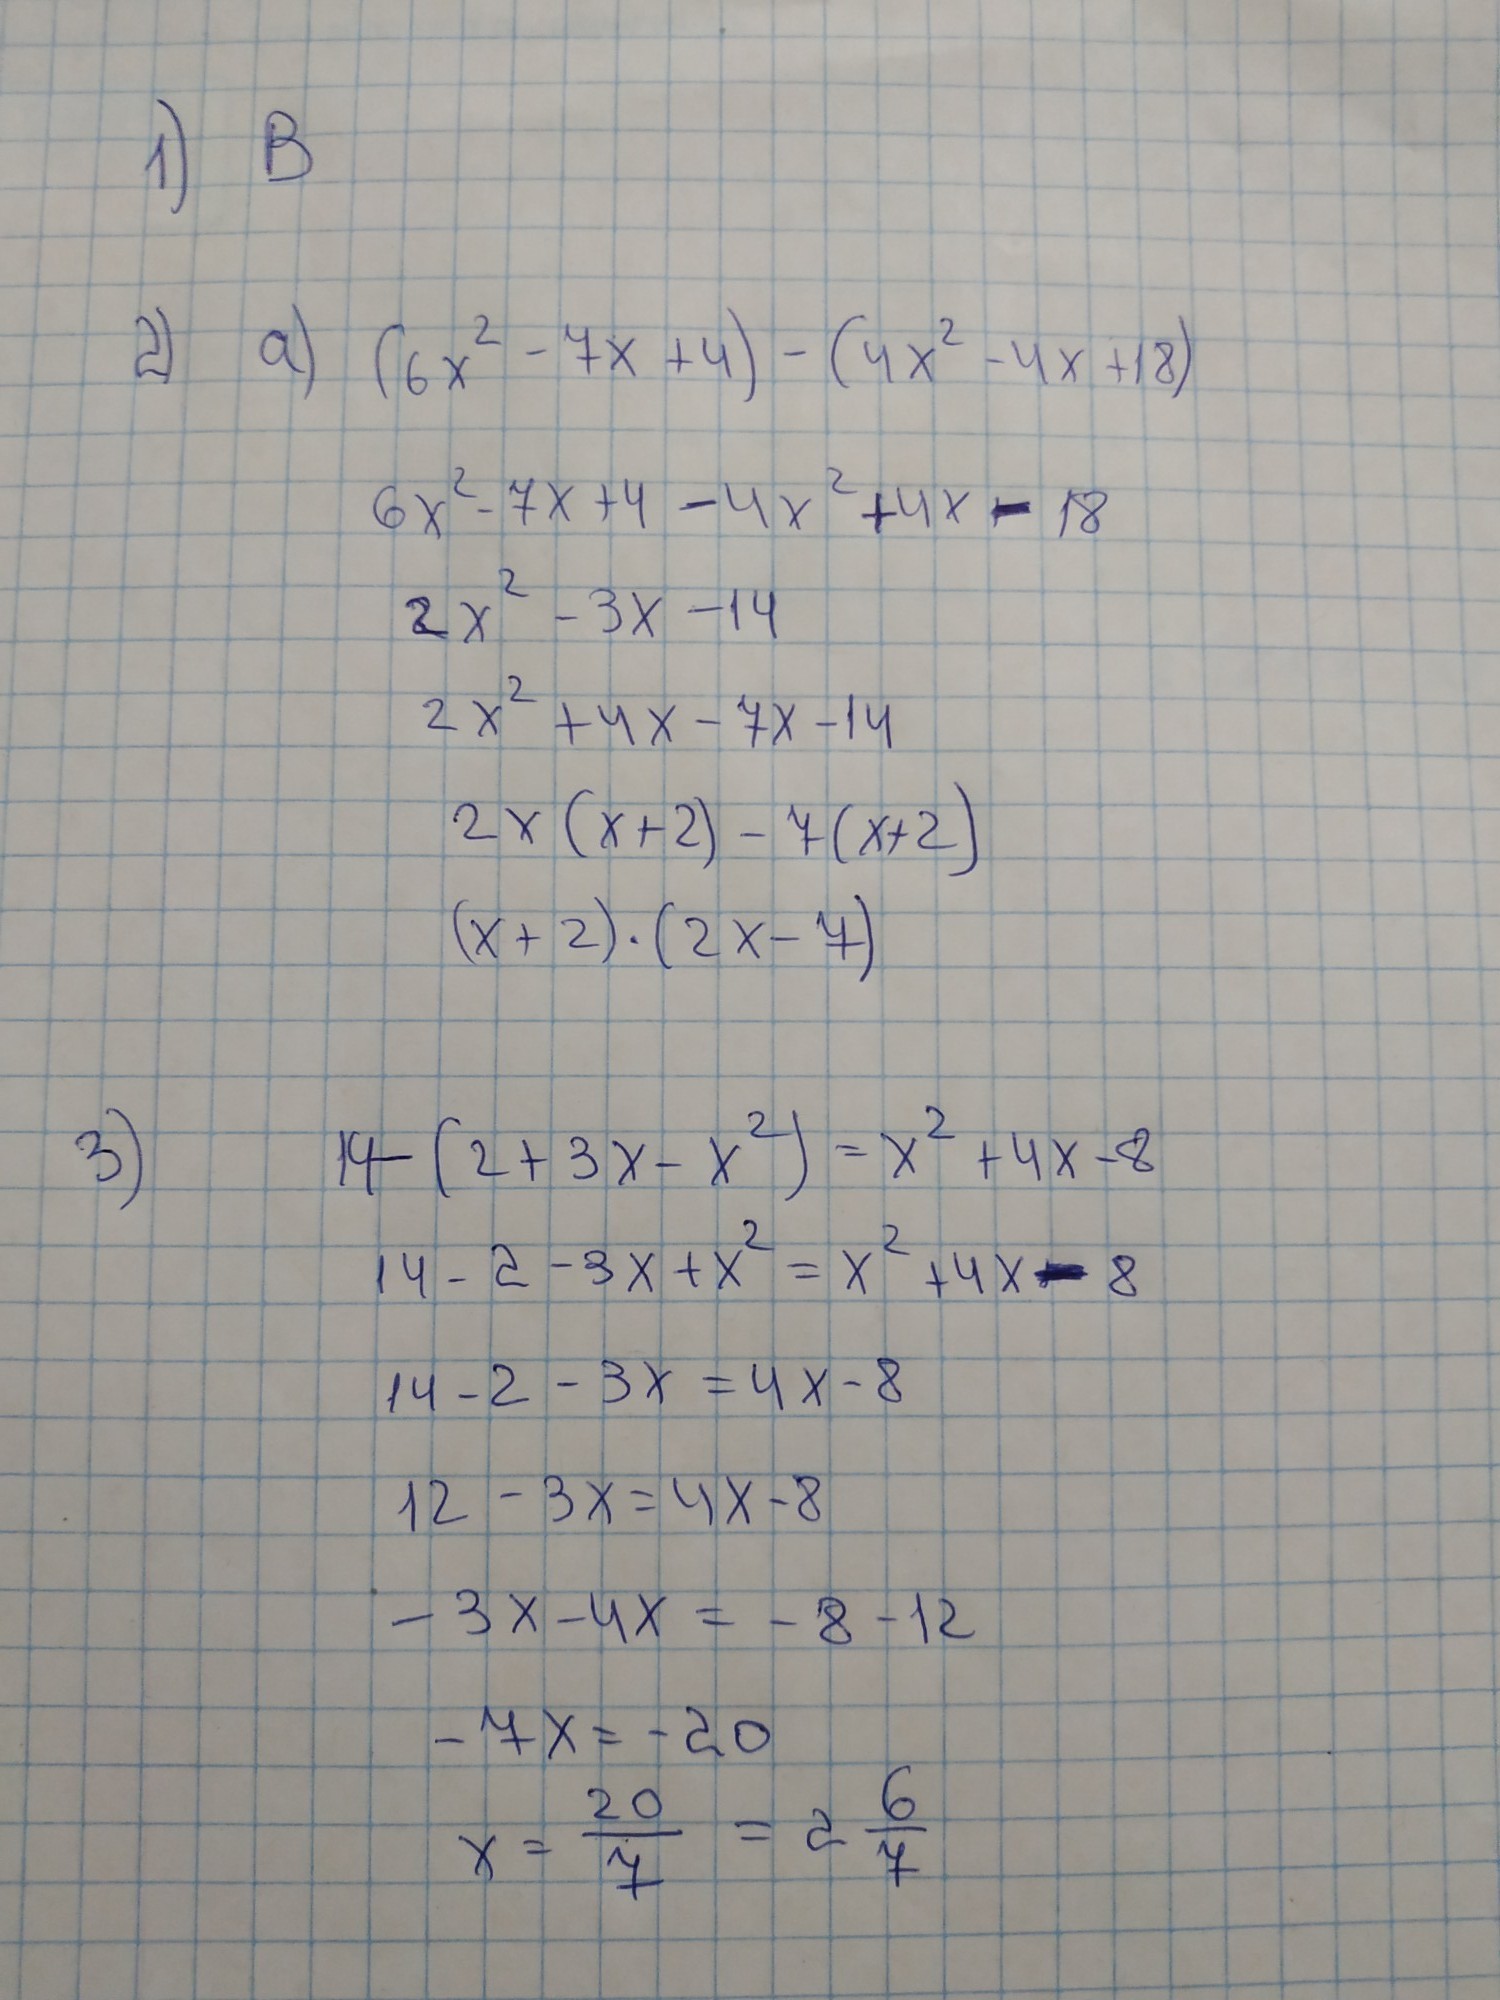 1) В
2) а) (6x² - 7x + 4) - (4x² - 4x + 18)
6x² - 7x + 4 - 4x² + 4x - 18
2x² - 3x - 14
2x² + 4x - 7x - 14
2x (x + 2) - 7 (x + 2)
(x + 2) · (2x - 7)
3) 14 - (2 + 3x - x²) = x² + 4x - 8
14 - 2 - 3x + x² = x² + 4x - 8
14 - 2 - 3x = 4x - 8
12 - 3x = 4x - 8
- 3x - 4x = - 8 - 12
- 7x = - 20
x = 20/7 = 2 6/7